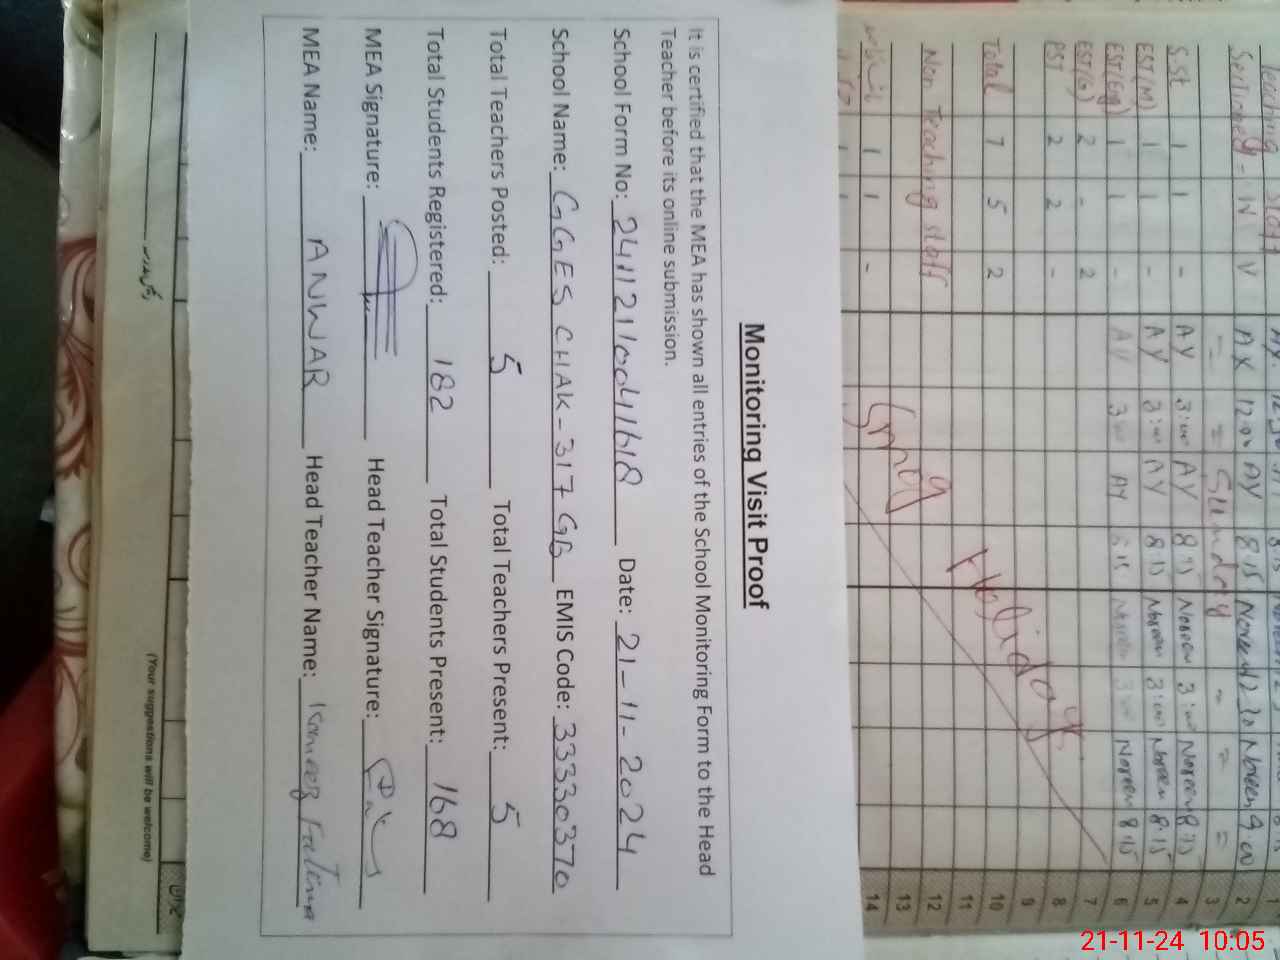 Monitoring Visit Proof
It is certified that the MEA has shown all entries of the School Monitoring Form to the Head
Teacher before its online submission.
School Form No: 24112110041618 Date: 21-11-2024
School Name: GGES CHAK-317 GB EMIS Code: 33330370
Total Teachers Posted: 5 Total Teachers Present: 5
Total Students Registered: 182 Total Students Present: 168
MEA Signature: Head Teacher Signature:
MEA Name: ANWAR Head Teacher Name: Kaneez Fatima
(Your suggestions will be welcome)
Teaching Staff
S - W V AX 12:00 AY 8:15 Noreen 12:30 Noreen 9:00 2
= = Sunday - = = 3
S.St 1 1 - AY 3:00 AY 8:15 Noreen 3:00 Noreen 8:15 4
EST(M) 1 1 - AY 3:00 AY 8:15 Noreen 3:00 Noreen 8:15 5
EST(Eng) 1 1 - AY 3:00 AY 8:15 Noreen 3:00 Noreen 8:15 6
EST(G) 2 - 2 7
PST 2 2 - 8
9
Total 7 5 2 10
11
Non Teaching staff Holiday 12
13
1 1 - 14
21-11-24 10:05